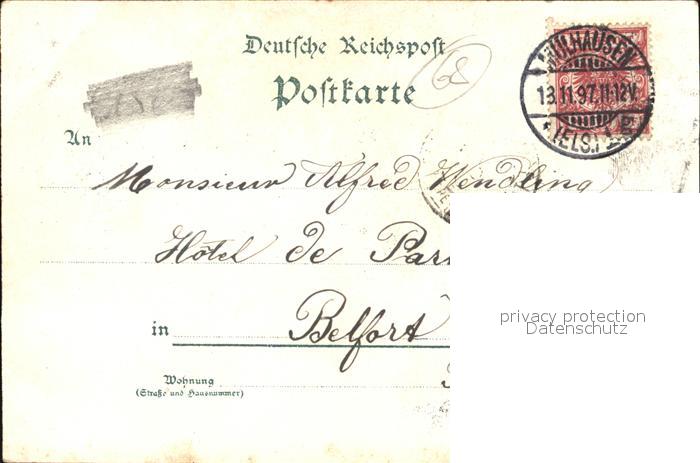 Deutsche Reichspost
68
Postkarte
MÜLHAUSEN
13.11.97.11-12V.
*(ELS.)
An
Monsieur Alfred Wendling
Hôtel de
in Belfort
Wohnung
(Straße und Hausnummer)
privacy protection
Datenschutz